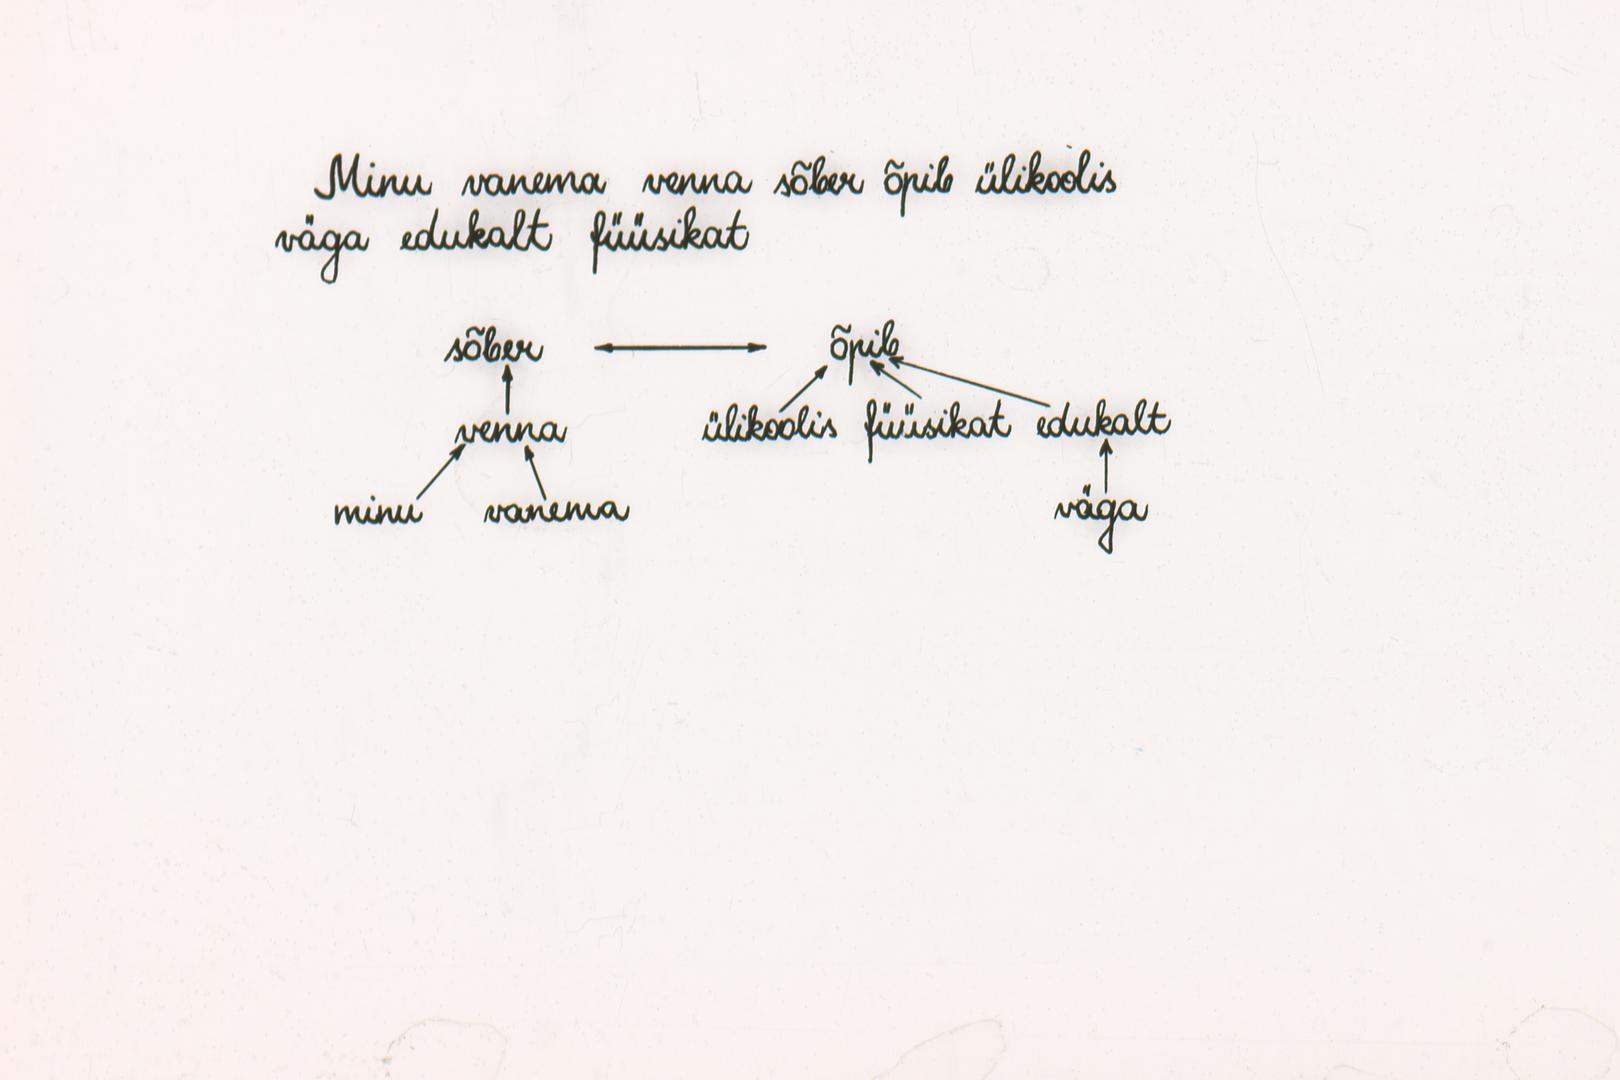 Minu vanema venna sõber õpib ülikoolis
väga edukalt füüsikat
sõber õpib
venna ülikoolis füüsikat edukalt
minu vanema väga